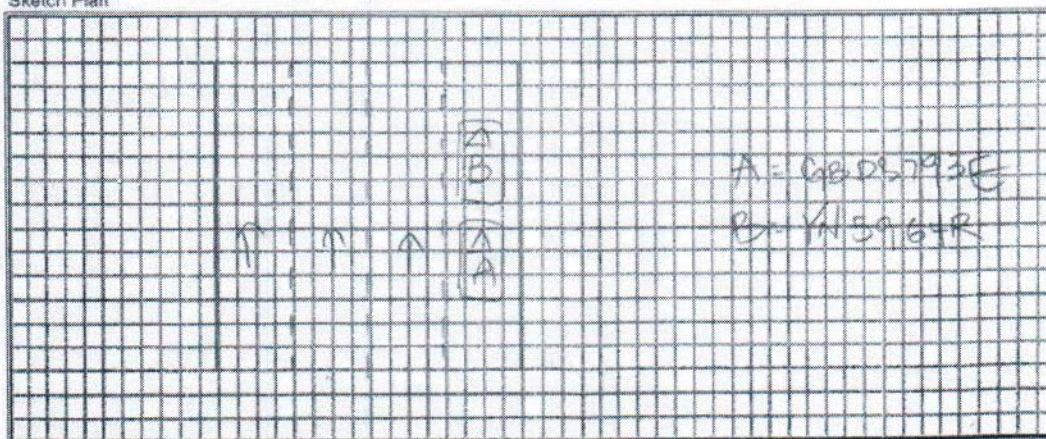 Sketch Plan
B
A
A = GBD5793E
B = YN5964R